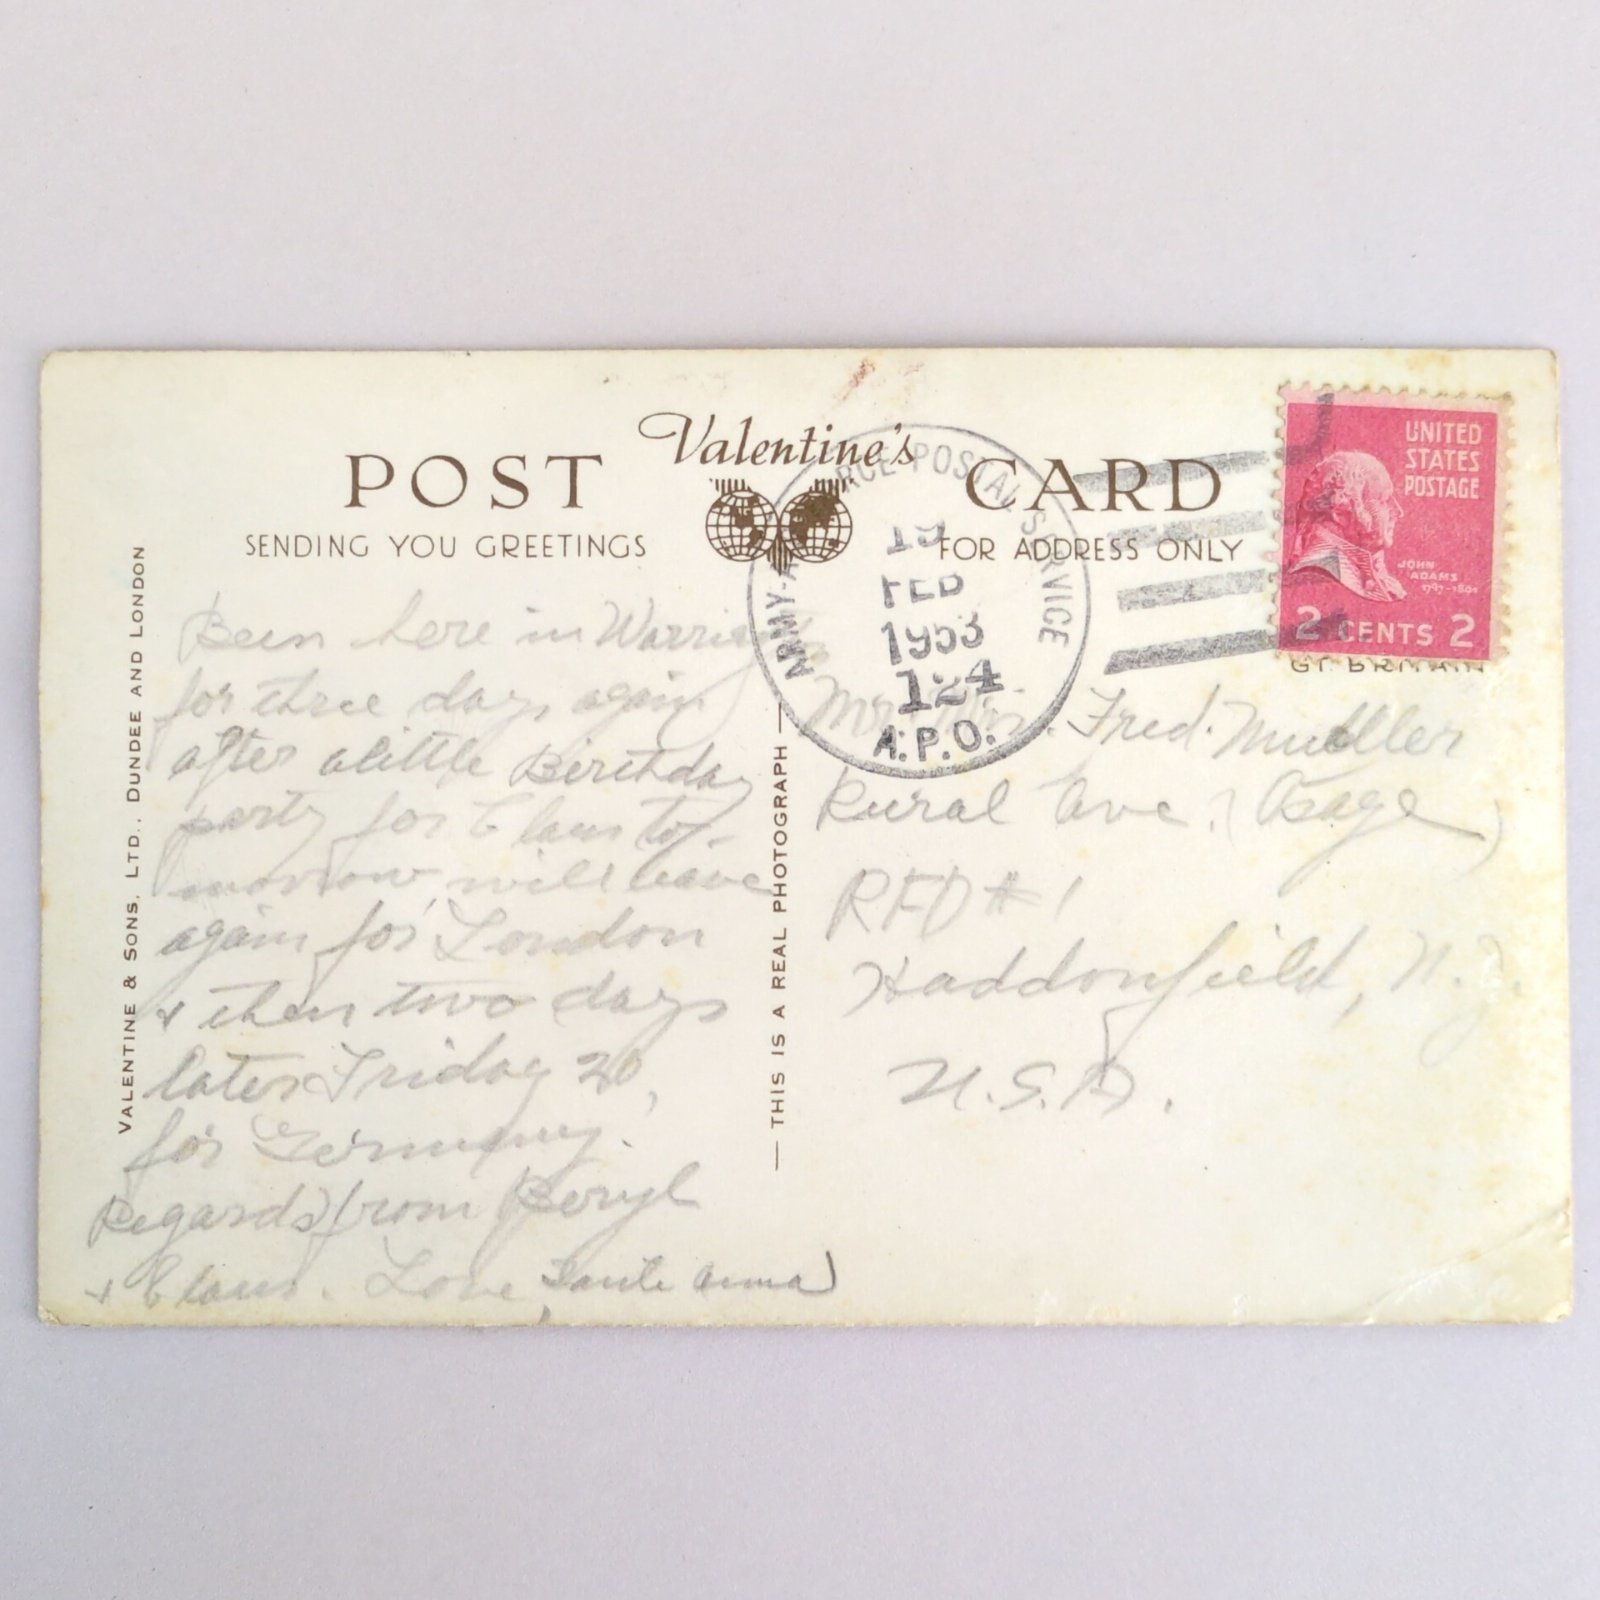 POST Valentine's CARD
SENDING YOU GREETINGS
FOR ADDRESS ONLY
VALENTINE & SONS, LTD., DUNDEE AND LONDON
THIS IS A REAL PHOTOGRAPH
ARMY-A RCE POSTAL SERVICE
19
FEB
1953
124
A.P.O.
UNITED
STATES
POSTAGE
JOHN
ADAMS
1797-1801
2 CENTS 2
GT. BRITAIN
Been here in
for three days again
after a little Birthday
party for Claus to-
morrow, will leave
again for London
& then two days
later Friday 20,
for Germany.
Regards from Beryl
& Claus. Love, Tante Anna
Mr. Mrs. Fred. Mueller
Rural Ave. (Osage)
RFD #1
Haddonfield, N.J.
U.S.A.